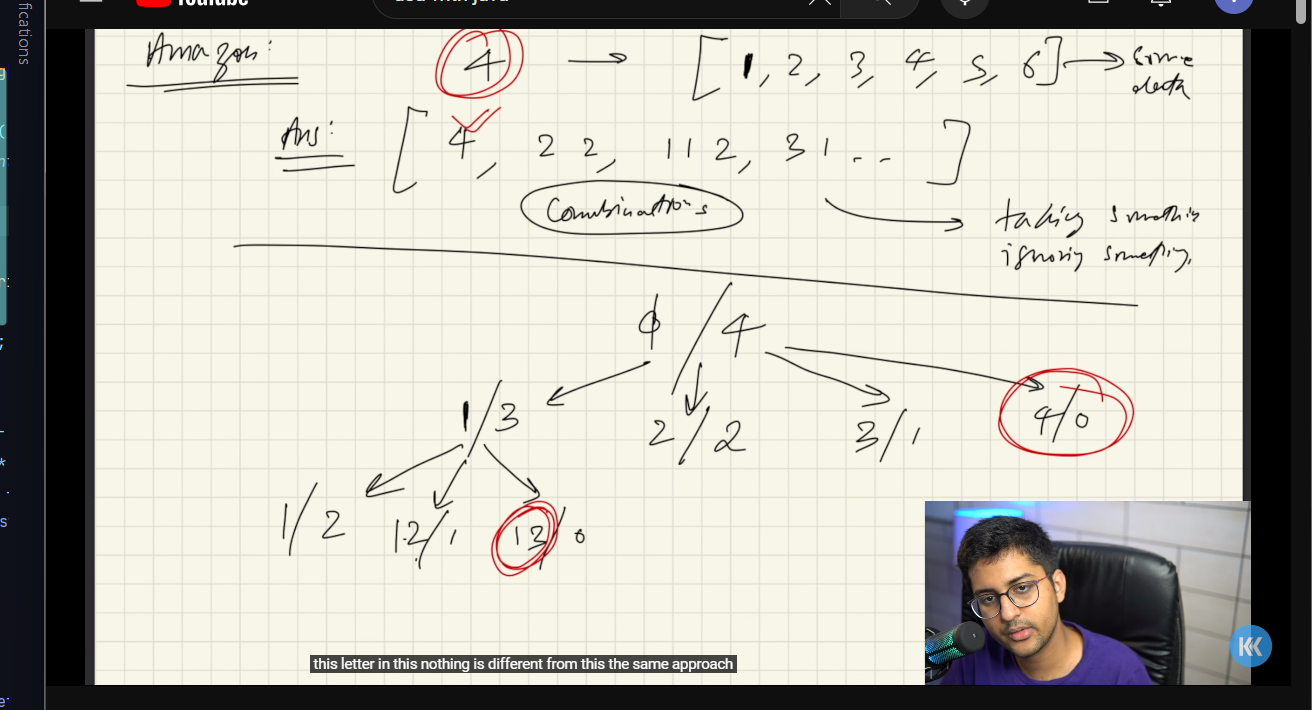 fications
YouTube
Amazon: 4 → [1, 2, 3, 4, 5, 6] →
Ans: [4, 22, 112, 31 . . ]
Combinations
taking
ignoring
ϕ / 4
1/3 2/2 3/1 4/0
1/2 12/1 13/0
this letter in this nothing is different from this the same approach